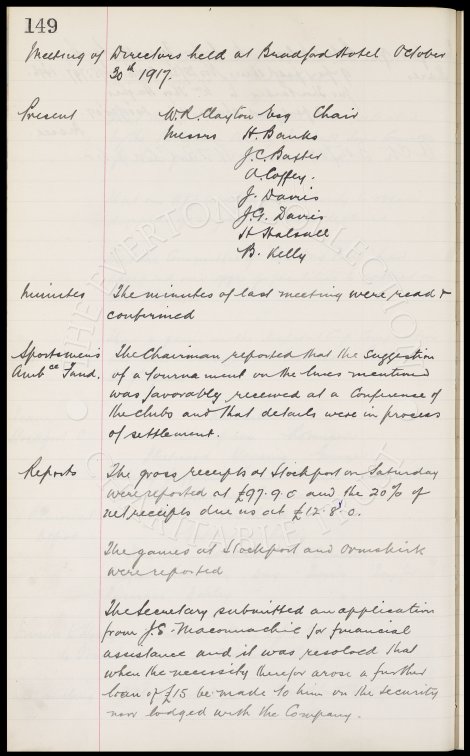 149
Meeting of Directors held at Bradford Hotel October
30th 1917.
Present W.R. Clayton Esq Chair
Messrs H. Banks
J.C. Baxter
A. Coffey.
J. Davies
J.G. Davies
H Halsall
B. Kelly
Minutes The minutes of last meeting were read &
confirmed
Sportsmen's The Chairman reported that the suggestion
Amb ce Fund. of a tournament on the lines mentioned
was favorably received at a Conference of
the clubs and that details were in process
of settlement.
Reports The gross receipts at Stockport on Saturday
were reported at £97.9.0 and the 20% of
net receipts due us at £12.8.0.
The games at Stockport and Ormskirk
were reported
The Secretary submitted an application
from J.S. Maconnachie for financial
assistance and it was resolved that
when the necessity therefor arose a further
loan of £15 be made to him on the security
now lodged with the Company.
THE EVERTON COLLECTION
CHARITABLE TRUST